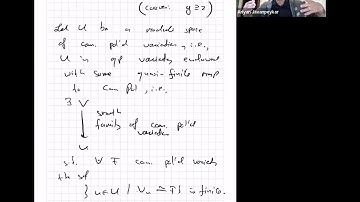 (curves: g ≥ 2)
Let U be a moduli space
of can. pol'd varieties, i.e.,
U is qp variety endowed
with some quasi-finite map
to Can Pol, i.e.,
∃ V
↓ smooth
family of can. pol'd
varieties
U
s.t. ∀ F can. pol'd variety
the set
{ u ∈ U | V_u ≅ F } is finite.
Ariyan Javanpeykar